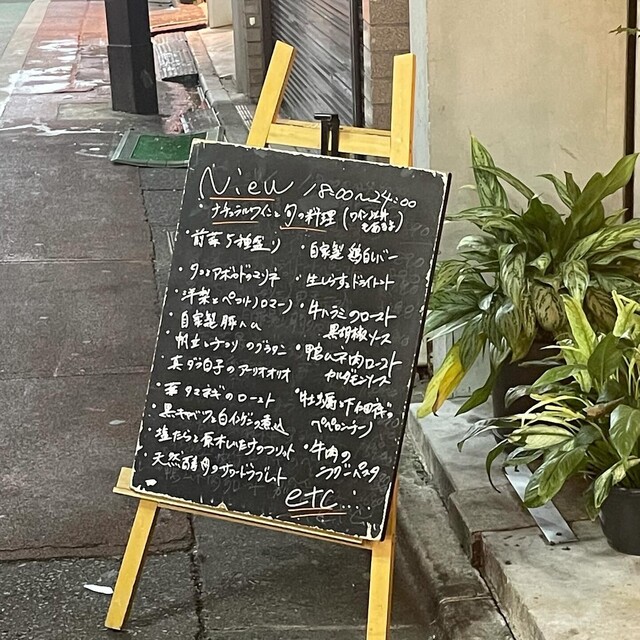 View 18:00〜24:00
・ナチュラルワインと旬の料理 (ワイン以外もあるよ)
・前菜5種盛り
・タコとアボカドのマリネ
・洋梨とペコリーノロマーノ
・自家製豚ハム
・帆立とキノコのグラタン
・真ダラ白子のアーリオオリオ
・タマネギのロースト
・黒キャベツと白インゲンの煮込
・塩たらと原木しいたけのフリット
・天然のサワードゥブレット
・自家製鶏白レバー
・生しらすとドライトマト
・牛ハラミのロースト
黒胡椒ソース
・鴨ムネ肉ロースト
カルダモンソース
・牡蠣と下仁田ネギの
ペペロンチーノ
・牛肉の
ラグーパスタ
etc....